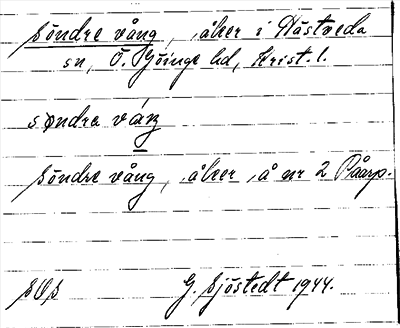 Söndre vång, åker i Hästveda
sn, Ö. Göinge hd, Krist. l.
søndra váŋ
Söndre vång, åker, å nr 2 Råarp.
SOS
G. Sjöstedt 1944.